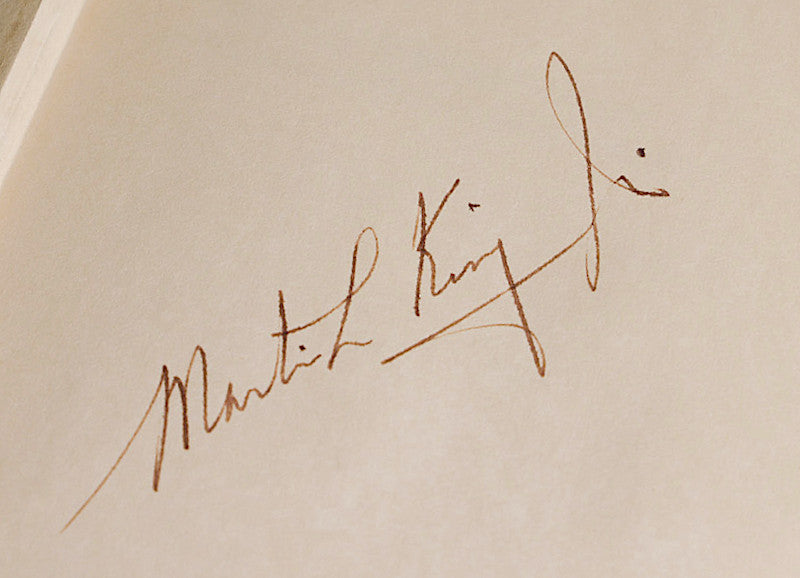 Martin L King Jr.